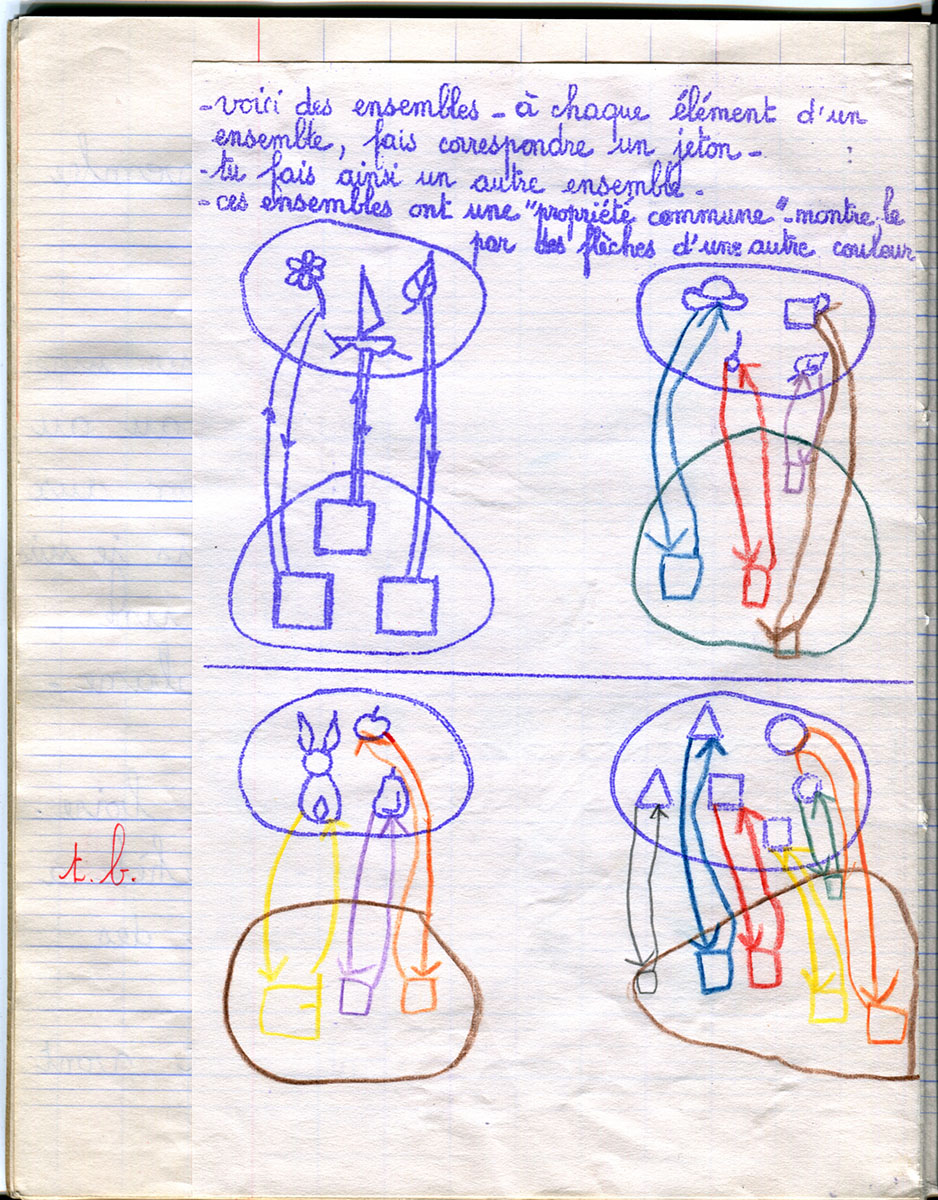 - voici des ensembles - à chaque élément d'un
ensemble, fais correspondre un jeton -
- tu fais ainsi un autre ensemble -
- ces ensembles ont une "propriété commune" - montre le
par des flèches d'une autre couleur
t. b.